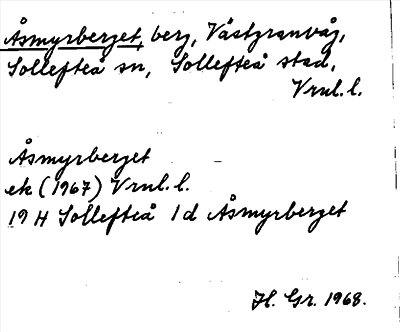 Åsmyrberget, berg, Västgranvåg,
Sollefteå sn, Sollefteå stad,
Vrnl. l.
Åsmyrberget
ek (1967) Vrnl. l.
19 H Sollefteå 1d Åsmyrberget
H. Gr. 1968.